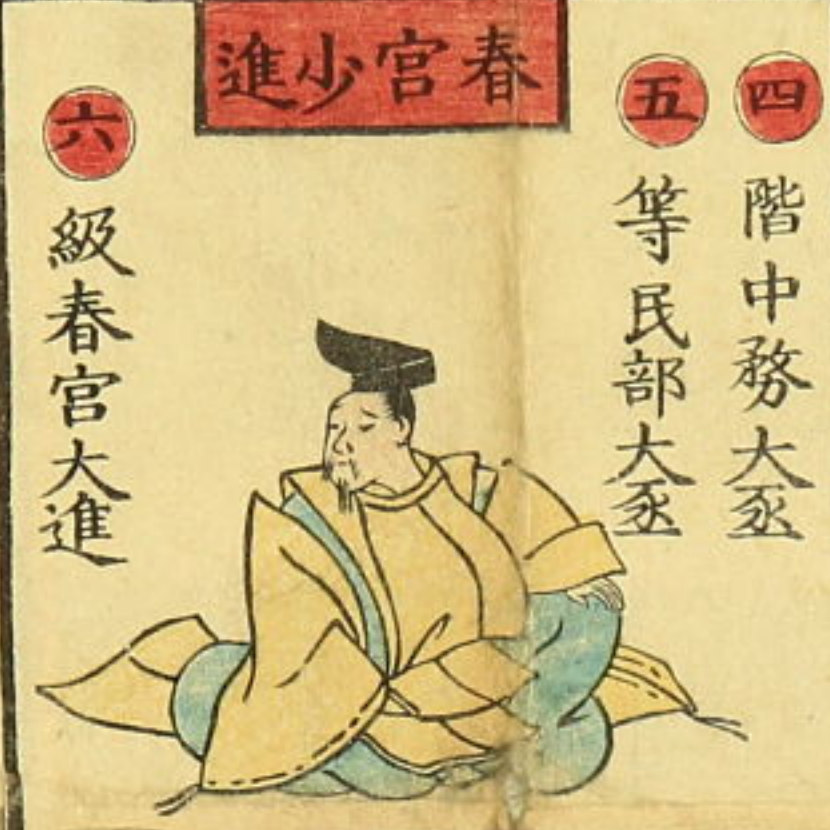 春宮少進
四 階中務大丞
五 等民部大丞
六 級春宮大進